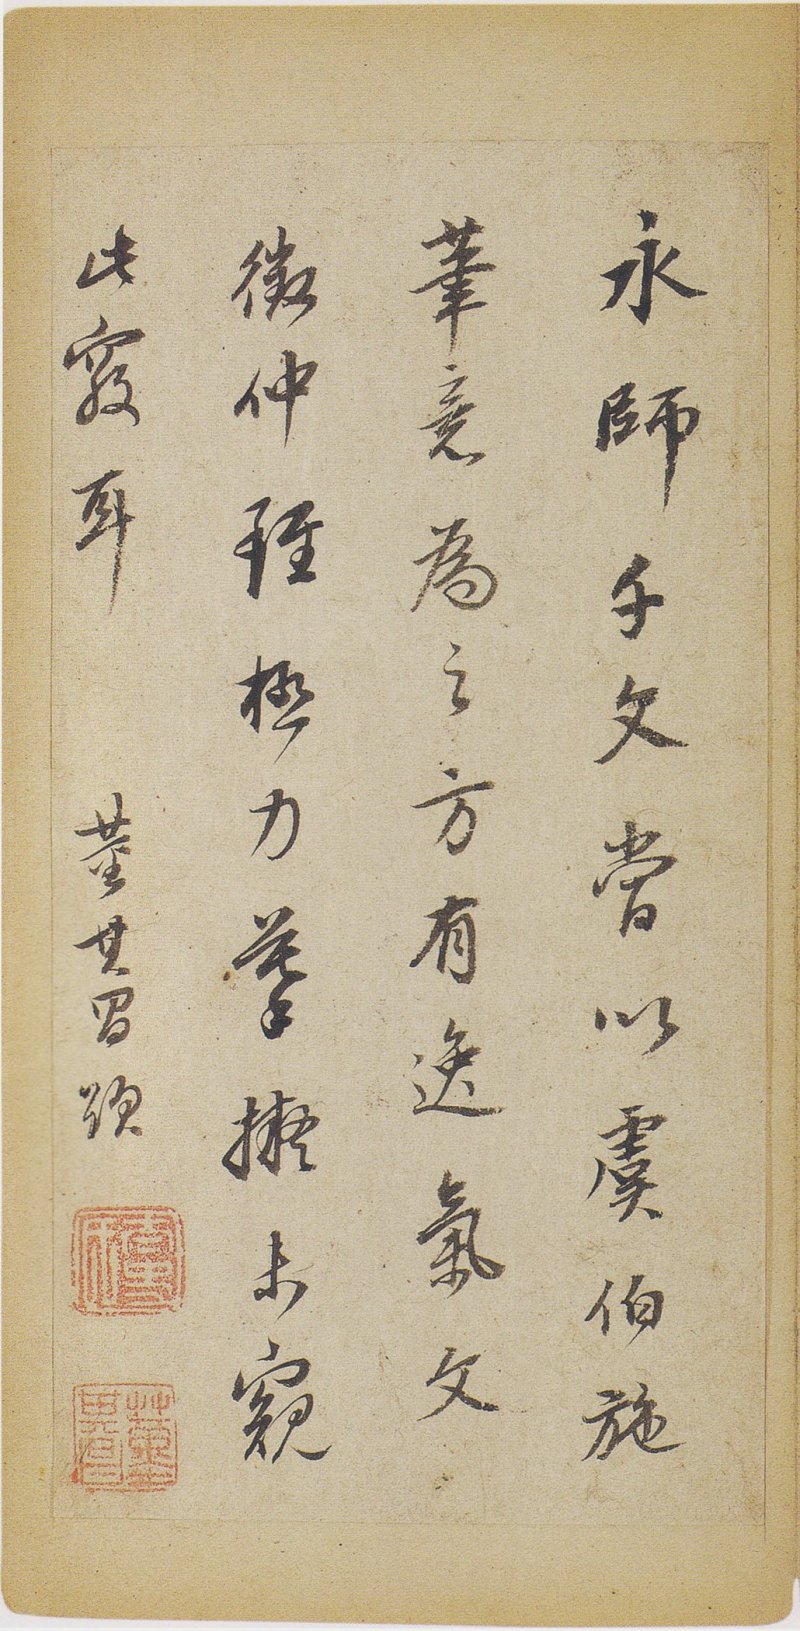 永師千文當以虞伯施
筆意為之方有逸氣文
徵仲雖極力摹擬未窺
此竅耳
董其昌題
董其昌